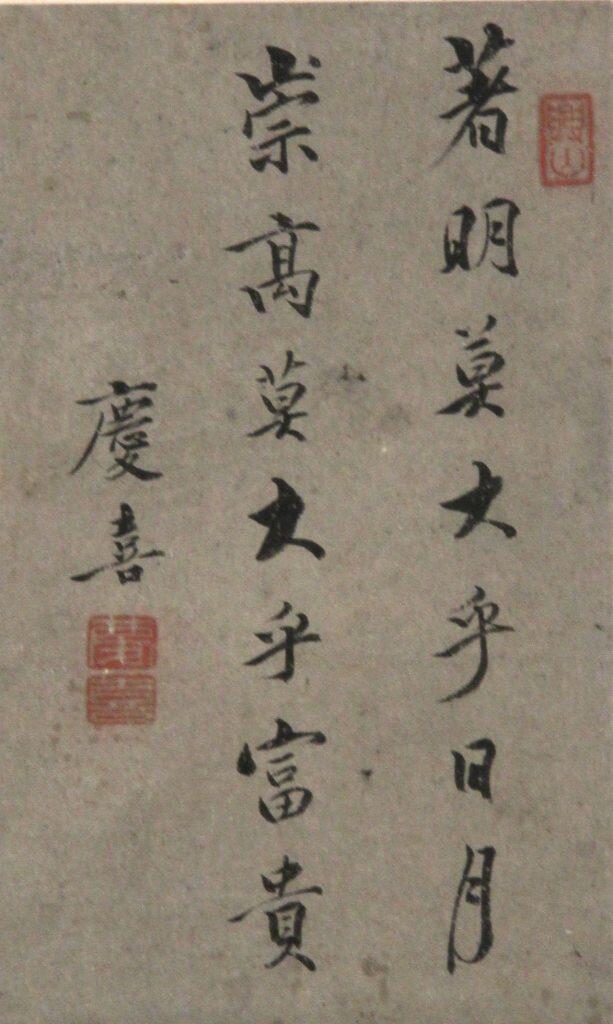 著明莫大乎日月
崇高莫大乎富貴
慶喜